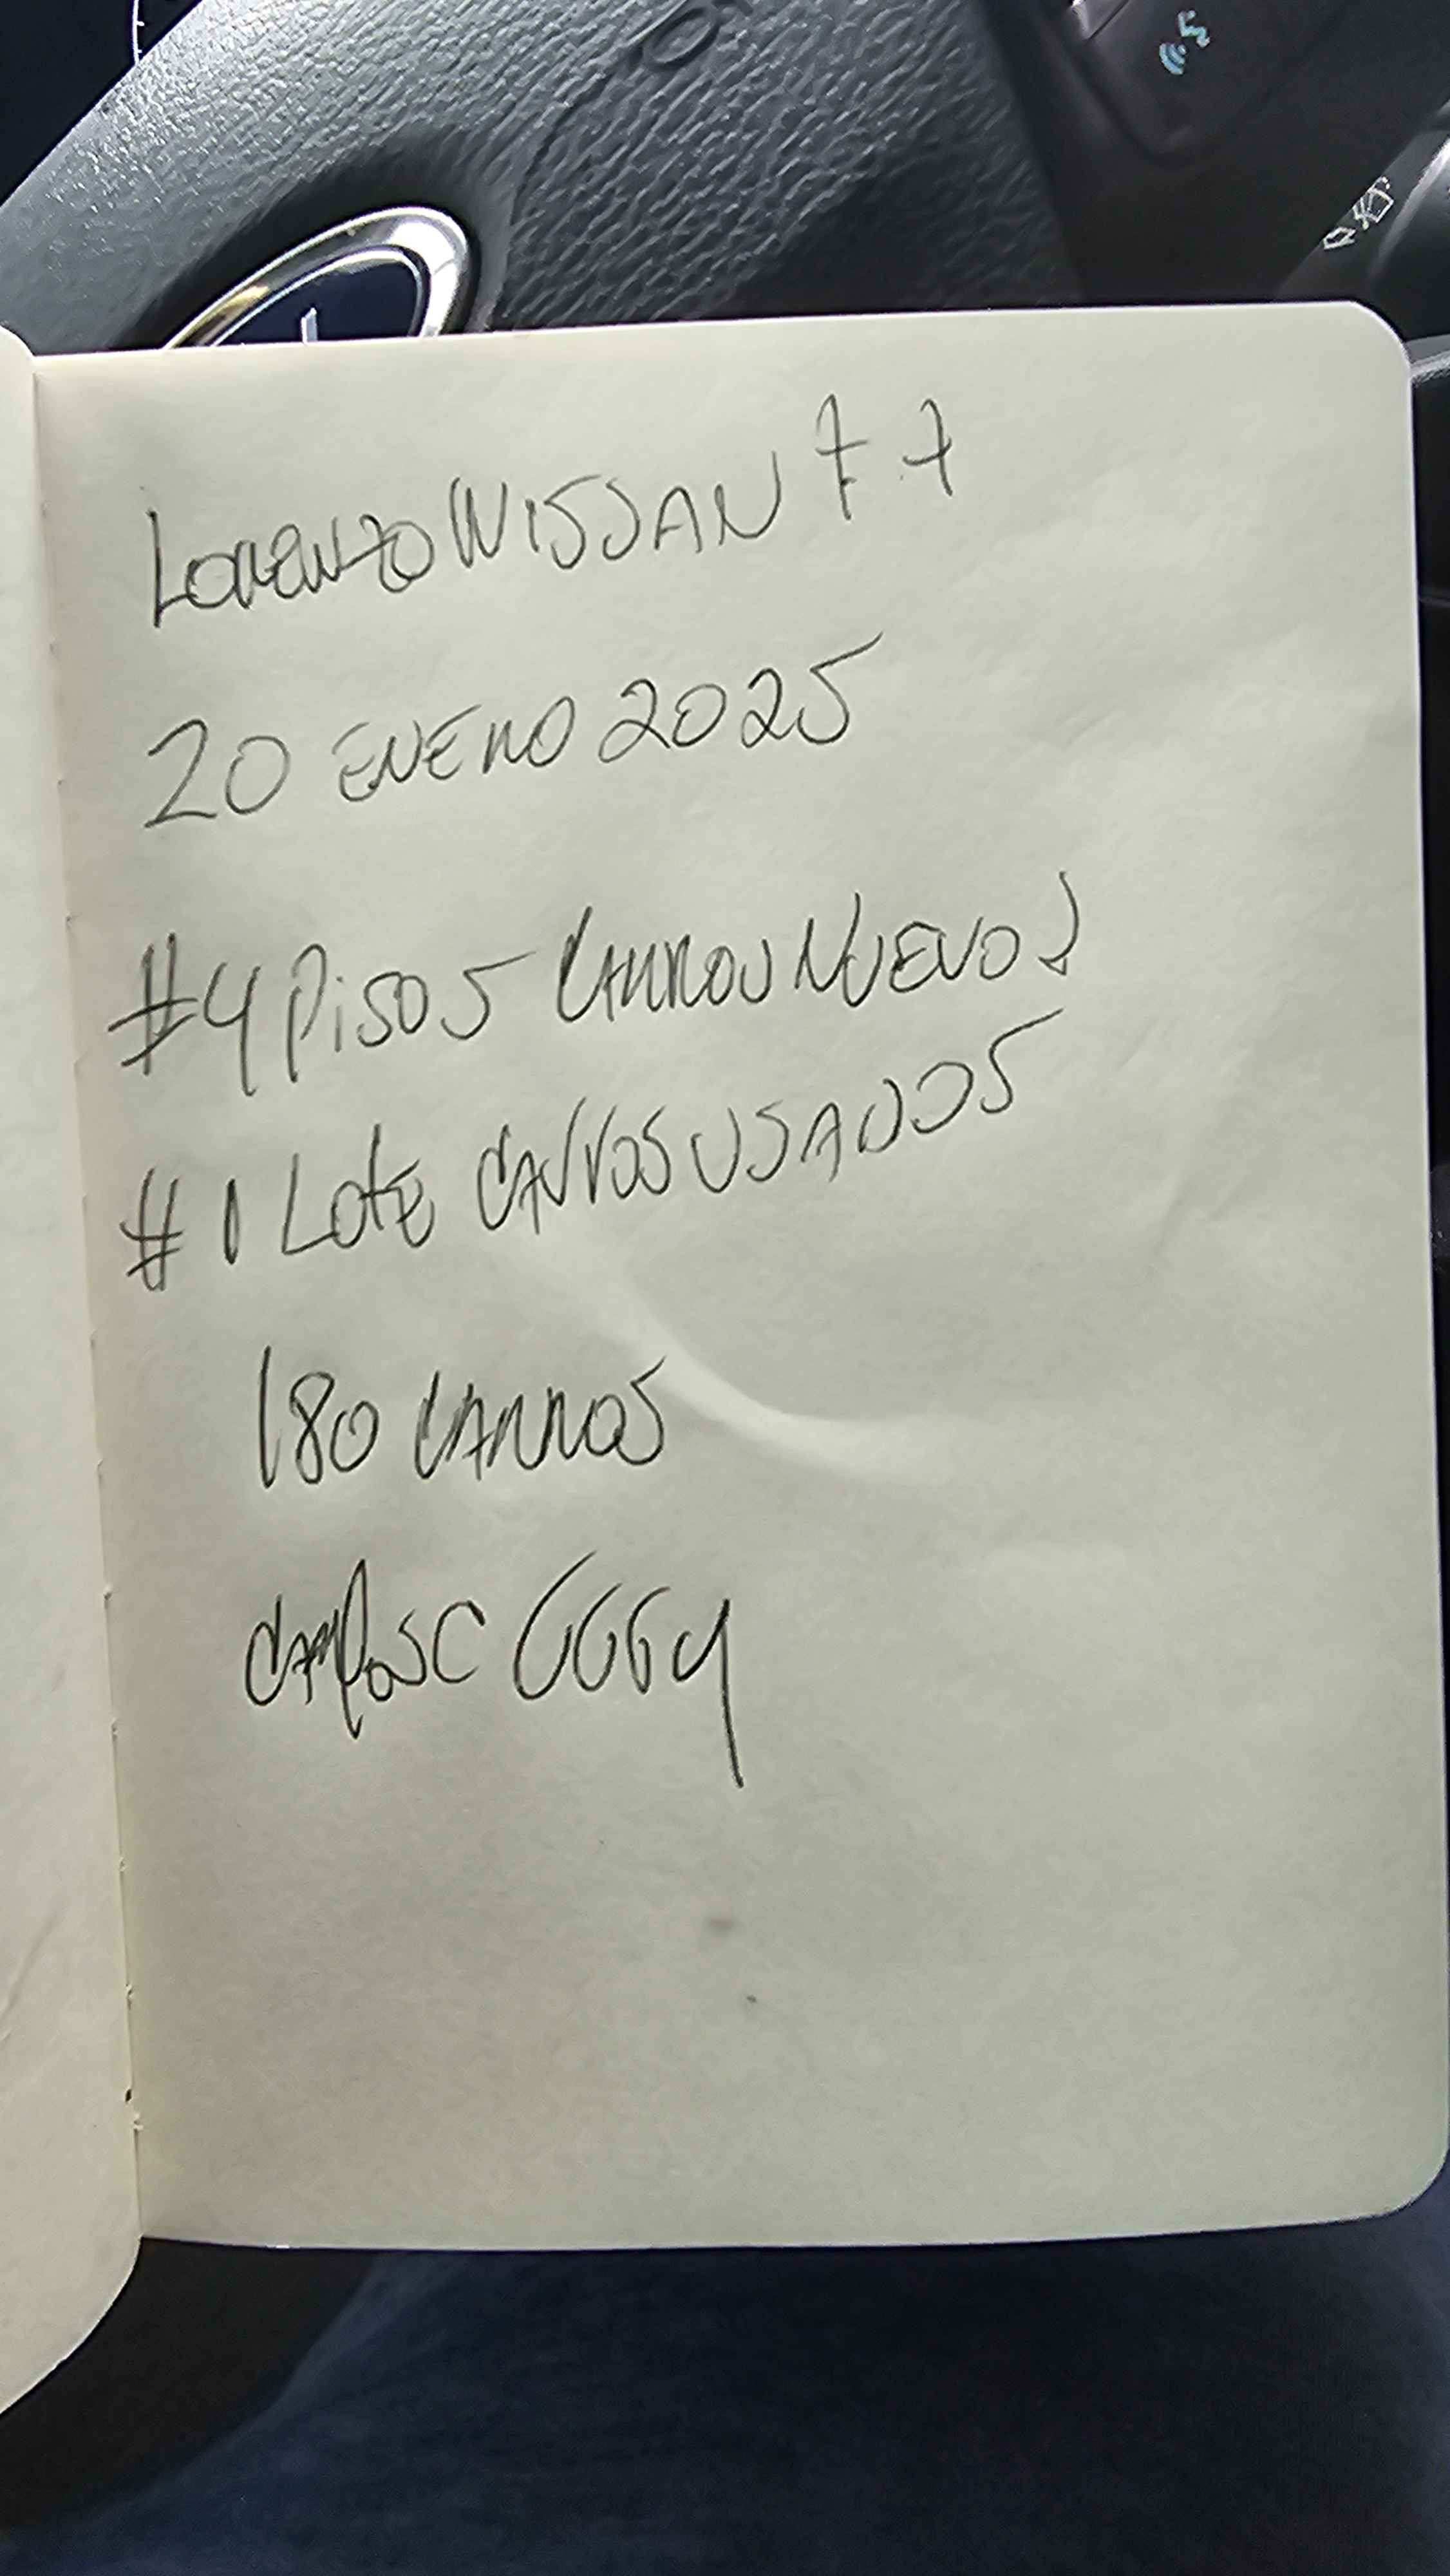 LORENZO NISSAN 77
20 ENERO 2025
#4 PISOS CARROS NUEVOS
#1 LOTE CARROS USADOS
180 CARROS
CAMPOSC 6664